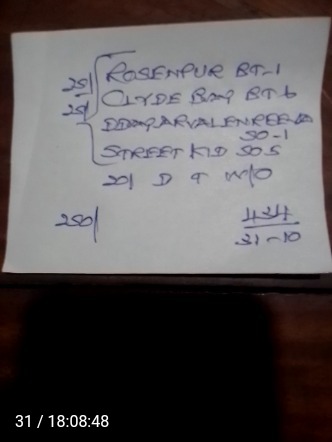 25/ ROSENPUR BT-1
25/ CLYDE BAY BT-6
SO-1
STREET KID SO5
20/ D T W/O
250/ 434
31-10
31 / 18:08:48